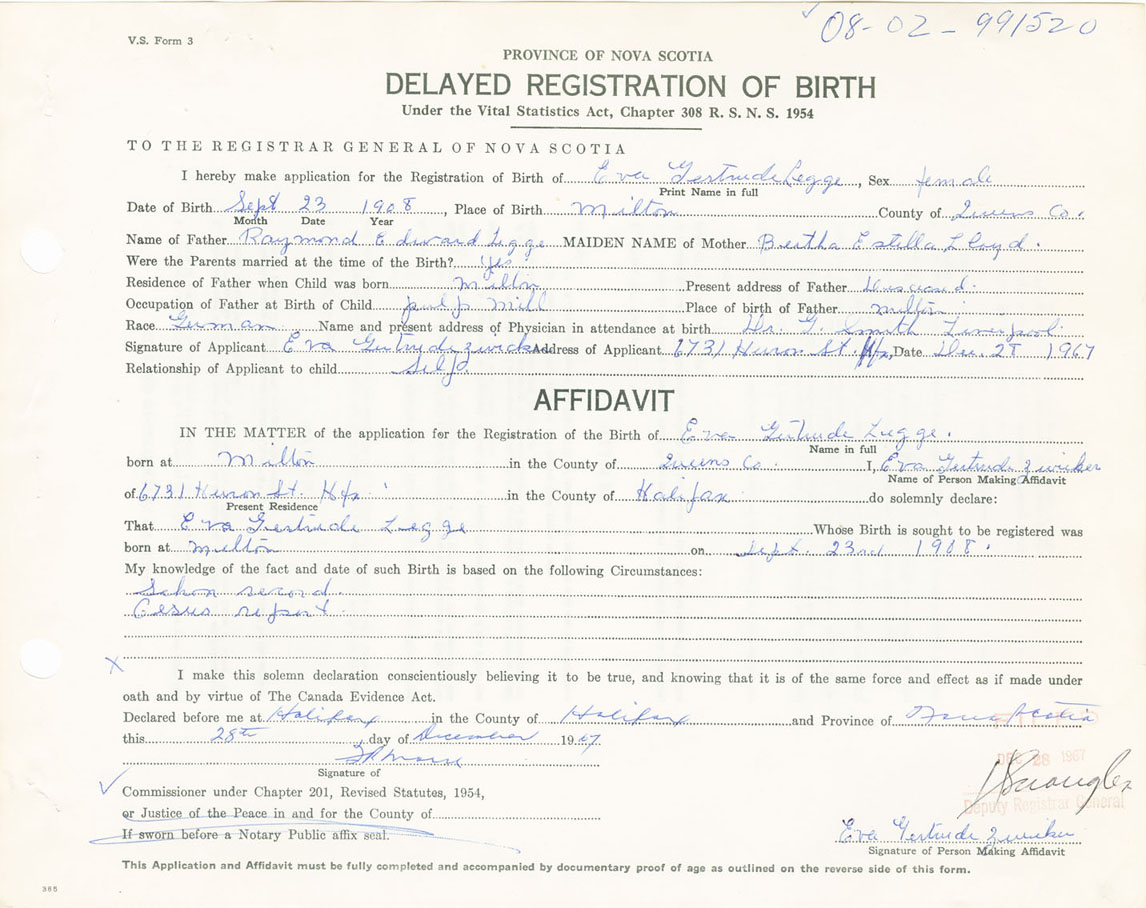 08-02-991520
V.S. Form 3
PROVINCE OF NOVA SCOTIA
DELAYED REGISTRATION OF BIRTH
Under the Vital Statistics Act, Chapter 308 R. S. N. S. 1954
TO THE REGISTRAR GENERAL OF NOVA SCOTIA
I hereby make application for the Registration of Birth of Eva Gertrude Legge, Sex female
Print Name in full
Date of Birth Sept 23 1908, Place of Birth Milton County of Queens Co.
Month Date Year
Name of Father Raymond Edward Legge MAIDEN NAME of Mother Bertha Estella Lloyd.
Were the Parents married at the time of the Birth? Yes
Residence of Father when Child was born Milton Present address of Father
Occupation of Father at Birth of Child pulp Mill Place of birth of Father Milton
Race German Name and present address of Physician in attendance at birth Dr. G. Smith Liverpool
Signature of Applicant Eva Gertrude Zwicker Address of Applicant 6731 Huron St Hfx, Date Dec. 28 1967
Relationship of Applicant to child Self.
AFFIDAVIT
IN THE MATTER of the application for the Registration of the Birth of Eva Gertrude Legge.
Name in full
born at Milton in the County of Queens Co. I, Eva Gertrude Zwicker
Name of Person Making Affidavit
of 6731 Huron St. Hfx. in the County of Halifax do solemnly declare:
Present Residence
That Eva Gertrude Legge Whose Birth is sought to be registered was
born at Milton on Sept. 23rd 1908.
My knowledge of the fact and date of such Birth is based on the following Circumstances:
record.
Cesus report.
X
I make this solemn declaration conscientiously believing it to be true, and knowing that it is of the same force and effect as if made under
oath and by virtue of The Canada Evidence Act.
Declared before me at Halifax in the County of Halifax and Province of Nova Scotia
this 28th, day of December 1967
DEC 28 1967
Signature of
Commissioner under Chapter 201, Revised Statutes, 1954,
Deputy Registrar General
or Justice of the Peace in and for the County of
If sworn before a Notary Public affix seal.
Eva Gertrude Zwicker
Signature of Person Making Affidavit
This Application and Affidavit must be fully completed and accompanied by documentary proof of age as outlined on the reverse side of this form.
385